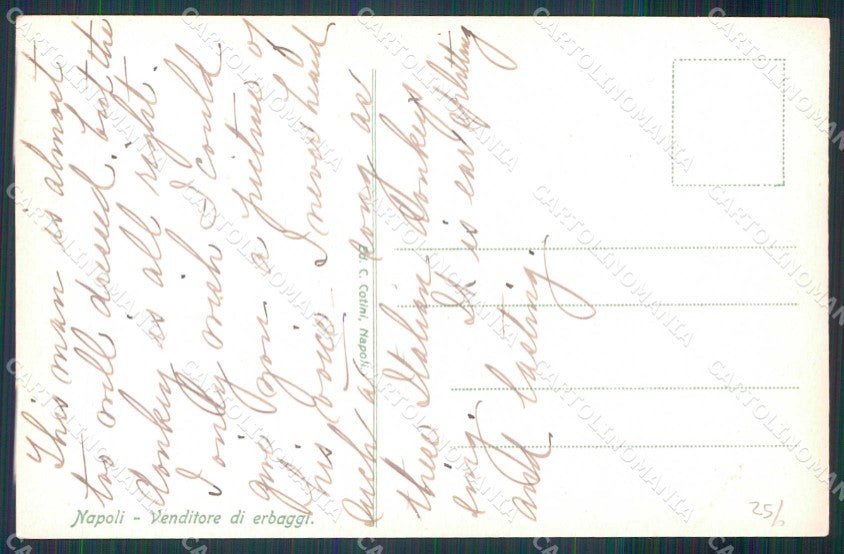 This man is almost
too well dressed, but the
donkey is all right.
I only wish I could
give you a picture of
his voice. I never heard
such a song as
these Italian donkeys
sing. It is ear splitting
and lasting.
Ed. C. Cotini, Napoli
Napoli - Venditore di erbaggi.
25/
CARTOLINOMANIA